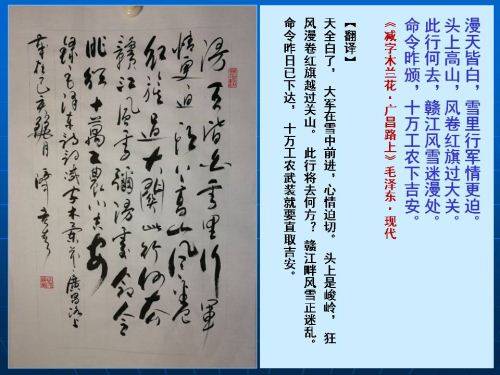 漫天皆白雪里行軍
情更迫頭上高山風卷
紅旗過大關此行何去
贛江風雪彌漫處命令
昨頒十萬工農下吉安
錄毛澤東詞減字木蘭花廣昌路上
漫天皆白，雪里行军情更迫。
头上高山，风卷红旗过大关。
此行何去，赣江风雪迷漫处。
命令昨颁，十万工农下吉安。
《减字木兰花·广昌路上》毛泽东·现代
【翻译】
天全白了，大军在雪中前进，心情迫切。头上是峻岭，狂
风漫卷红旗越过关山。此行将去何方？赣江畔风雪正迷乱。
命令昨日已下达，十万工农武装就要直取吉安。